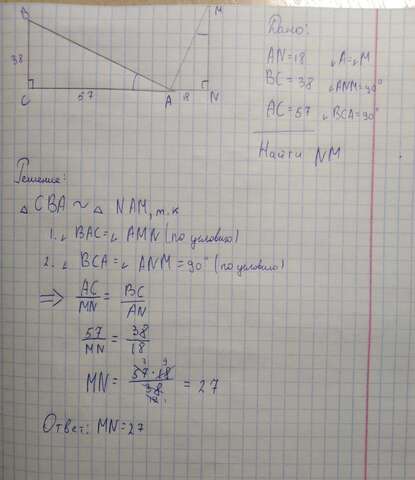 B
M
38
C
57
A
18
N
Дано:
AN=18 ∠A=∠M
BC=38 ∠ANM=90°
AC=57 ∠BCA=90°
Найти NM
Решение:
△ CBA ~ △ NAM, т.к
1. ∠ BAC=∠ AMN (по условию)
2. ∠ BCA=∠ ANM=90° (по условию)
⇒ AC/MN = BC/AN
57/MN = 38/18
MN= 57·18/38 = 27
Ответ: MN=27